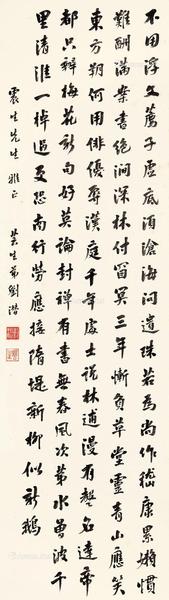 不用浮文薦子虛底須滄海問遺珠若爲尚作嵇康累嬾慣
難酬滿案書絕澗深林付窅冥三年慚負草堂靈青山應笑
東方朔何用俳優辱漢庭千年處士說林逋漫有聲名達帝
都只辨梅花新句好莫論封禪有書無春風次第水曾波千
里清淮一棹過更恐南行勞應接隋堤新柳似新鵝
震生先生雅正
芸生弟劉潛